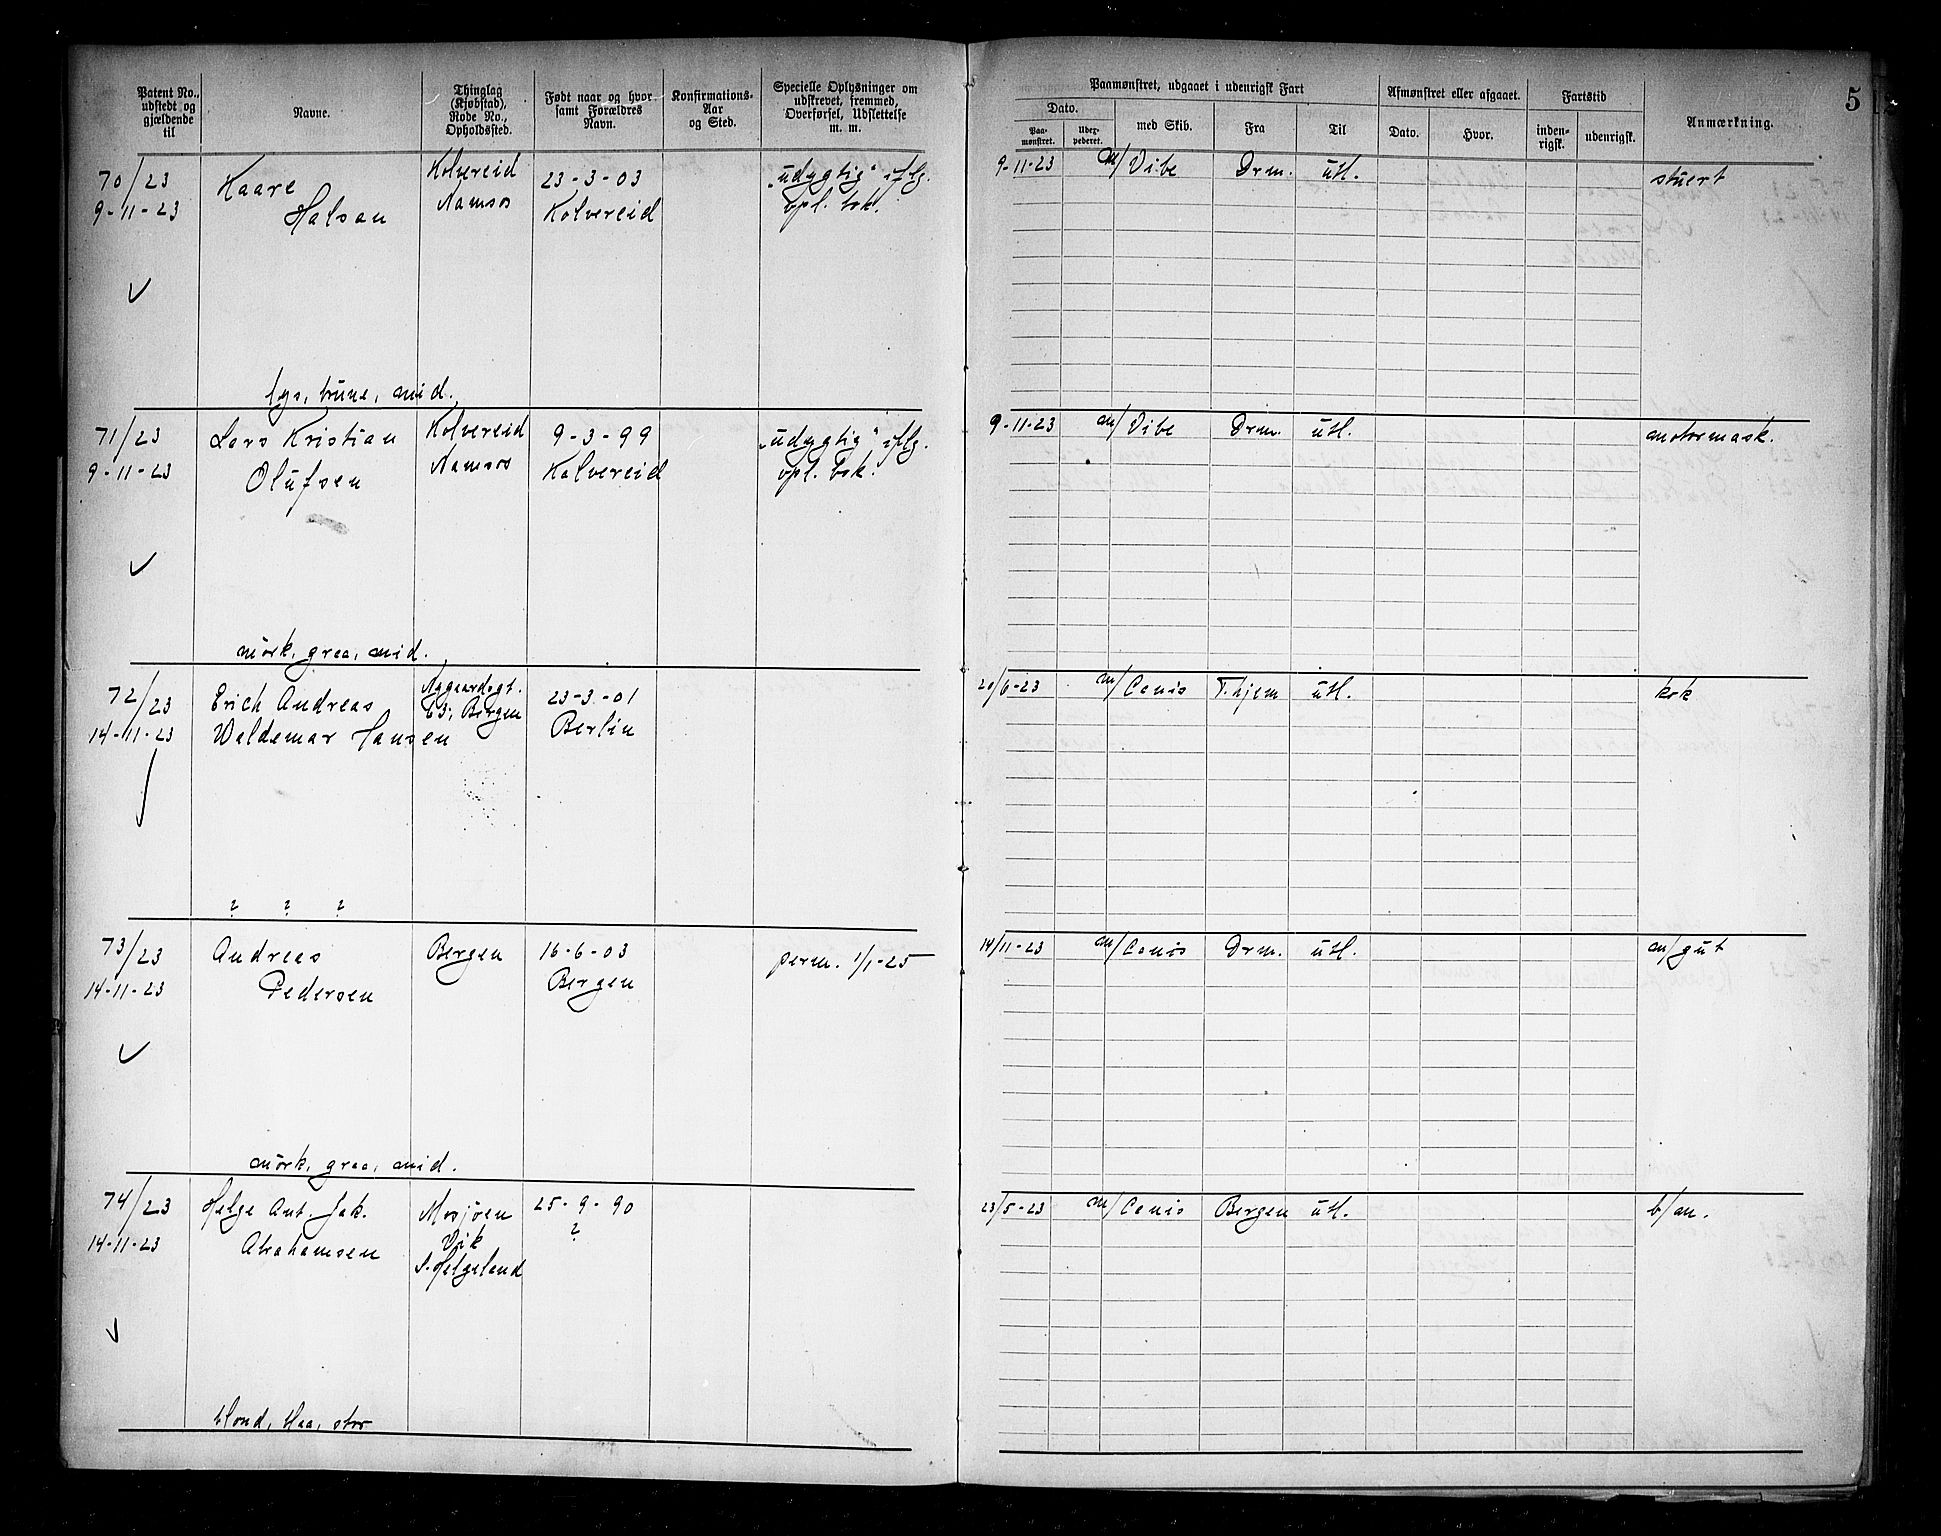 Patent No., udstedt og gjældende til
Navne.
Thinglag (Kjøbstad), Rode No., Opholdssted.
Født naar og hvor samt Forældres Navn.
Konfirmations-Aar og Sted.
Specielle Oplysninger om udskrevet, fremmed, Overførsel, Udslettelse m. m.
Paamønstret, udgaaet i udenrigsk Fart
Dato.
Paa-mønstret.
Uder-pederet.
med Skib.
Fra
Til
Afmønstret eller afgaaet.
Dato.
Hvor.
Fartstid
inden-rigsk.
udenrigsk.
Anmærkning.
5
70/23
9-11-23
Kaare
Halsan
Kolvereid
Namsos
23-3-03
Kolvereid
"udygtig" iflg.
opl. bok.
9-11-23
m/ Vibe
Drm.
utl.
stuert
lys, brune, mid.
71/23
9-11-23
Lars Kristian
Olufsen
Kolvereid
Namsos
9-3-99
Kolvereid
"udygtig" iflg.
opl. bok.
9-11-23
m/ Vibe
Drm.
utl.
motormask.
mørk, graa, mid.
72/23
14-11-23
Erich Andreas
Waldemar Hansen
Nygaardsgt.
63, Bergen
23-3-01
Berlin
20/6-23
m/ Canis
T.hjem
utl.
kok
? ? ?
73/23
14-11-23
Andreas
Pedersen
Bergen
16-6-03
Bergen
perm. 1/1-25
14/11-23
m/ Canis
Drm.
utl.
m/gut
mørk, graa, mid.
74/23
14-11-23
Helge Ant. Jak.
Abrahamsen
Mosjøen
Vik
S. Helgeland
25-9-90
?
23/5-23
m/ Canis
Bergen
utl.
b/m.
blond, blaa, stor